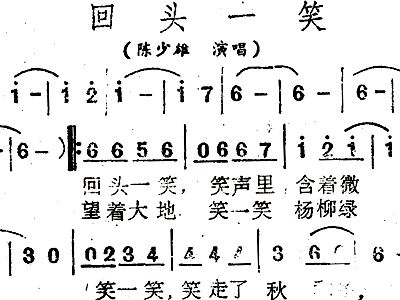 回头一笑
(陈少雄 演唱)
i - | i 2 | i - | i 7 | 6 - | 6 - |
6 - ) ‖: 6 6 5 6 | 0 6 6 7 | i 2 i | i
回头一笑, 笑声里 含着微
望着大地 笑一笑 杨柳绿
| 3 0 | 0 2 3 4 | 4 4 4 | 3 6 | 6
笑一笑, 笑走了 秋